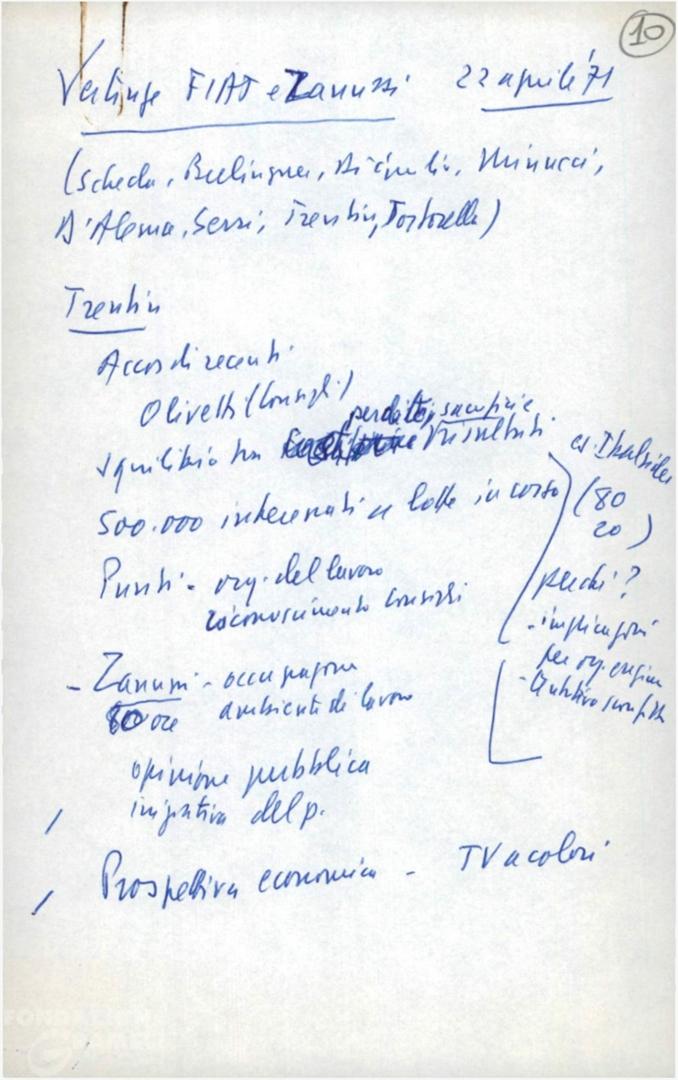 10
Vertenze FIAT e Zanussi 22 aprile '71
(Scheda, Berlinguer, Di Giulio, Minucci,
D'Alema, Serri, Trentin, Tortorella)
Trentin
Accordi recenti
Olivetti (Consigli)
perdite, sacrifici
squilibrio tra risultati
es. Italsider
500.000 interessati a lotte in corso
(80
20)
Punti - org. del lavoro
riconoscimento Consigli
perché?
- implicazioni
per org.
- Zanussi - occupazione
80 ore ambiente di lavoro
opinione pubblica
iniziativa del p.
Prospettiva economica - TV a colori
FONDAZIONE
GRAMSCI